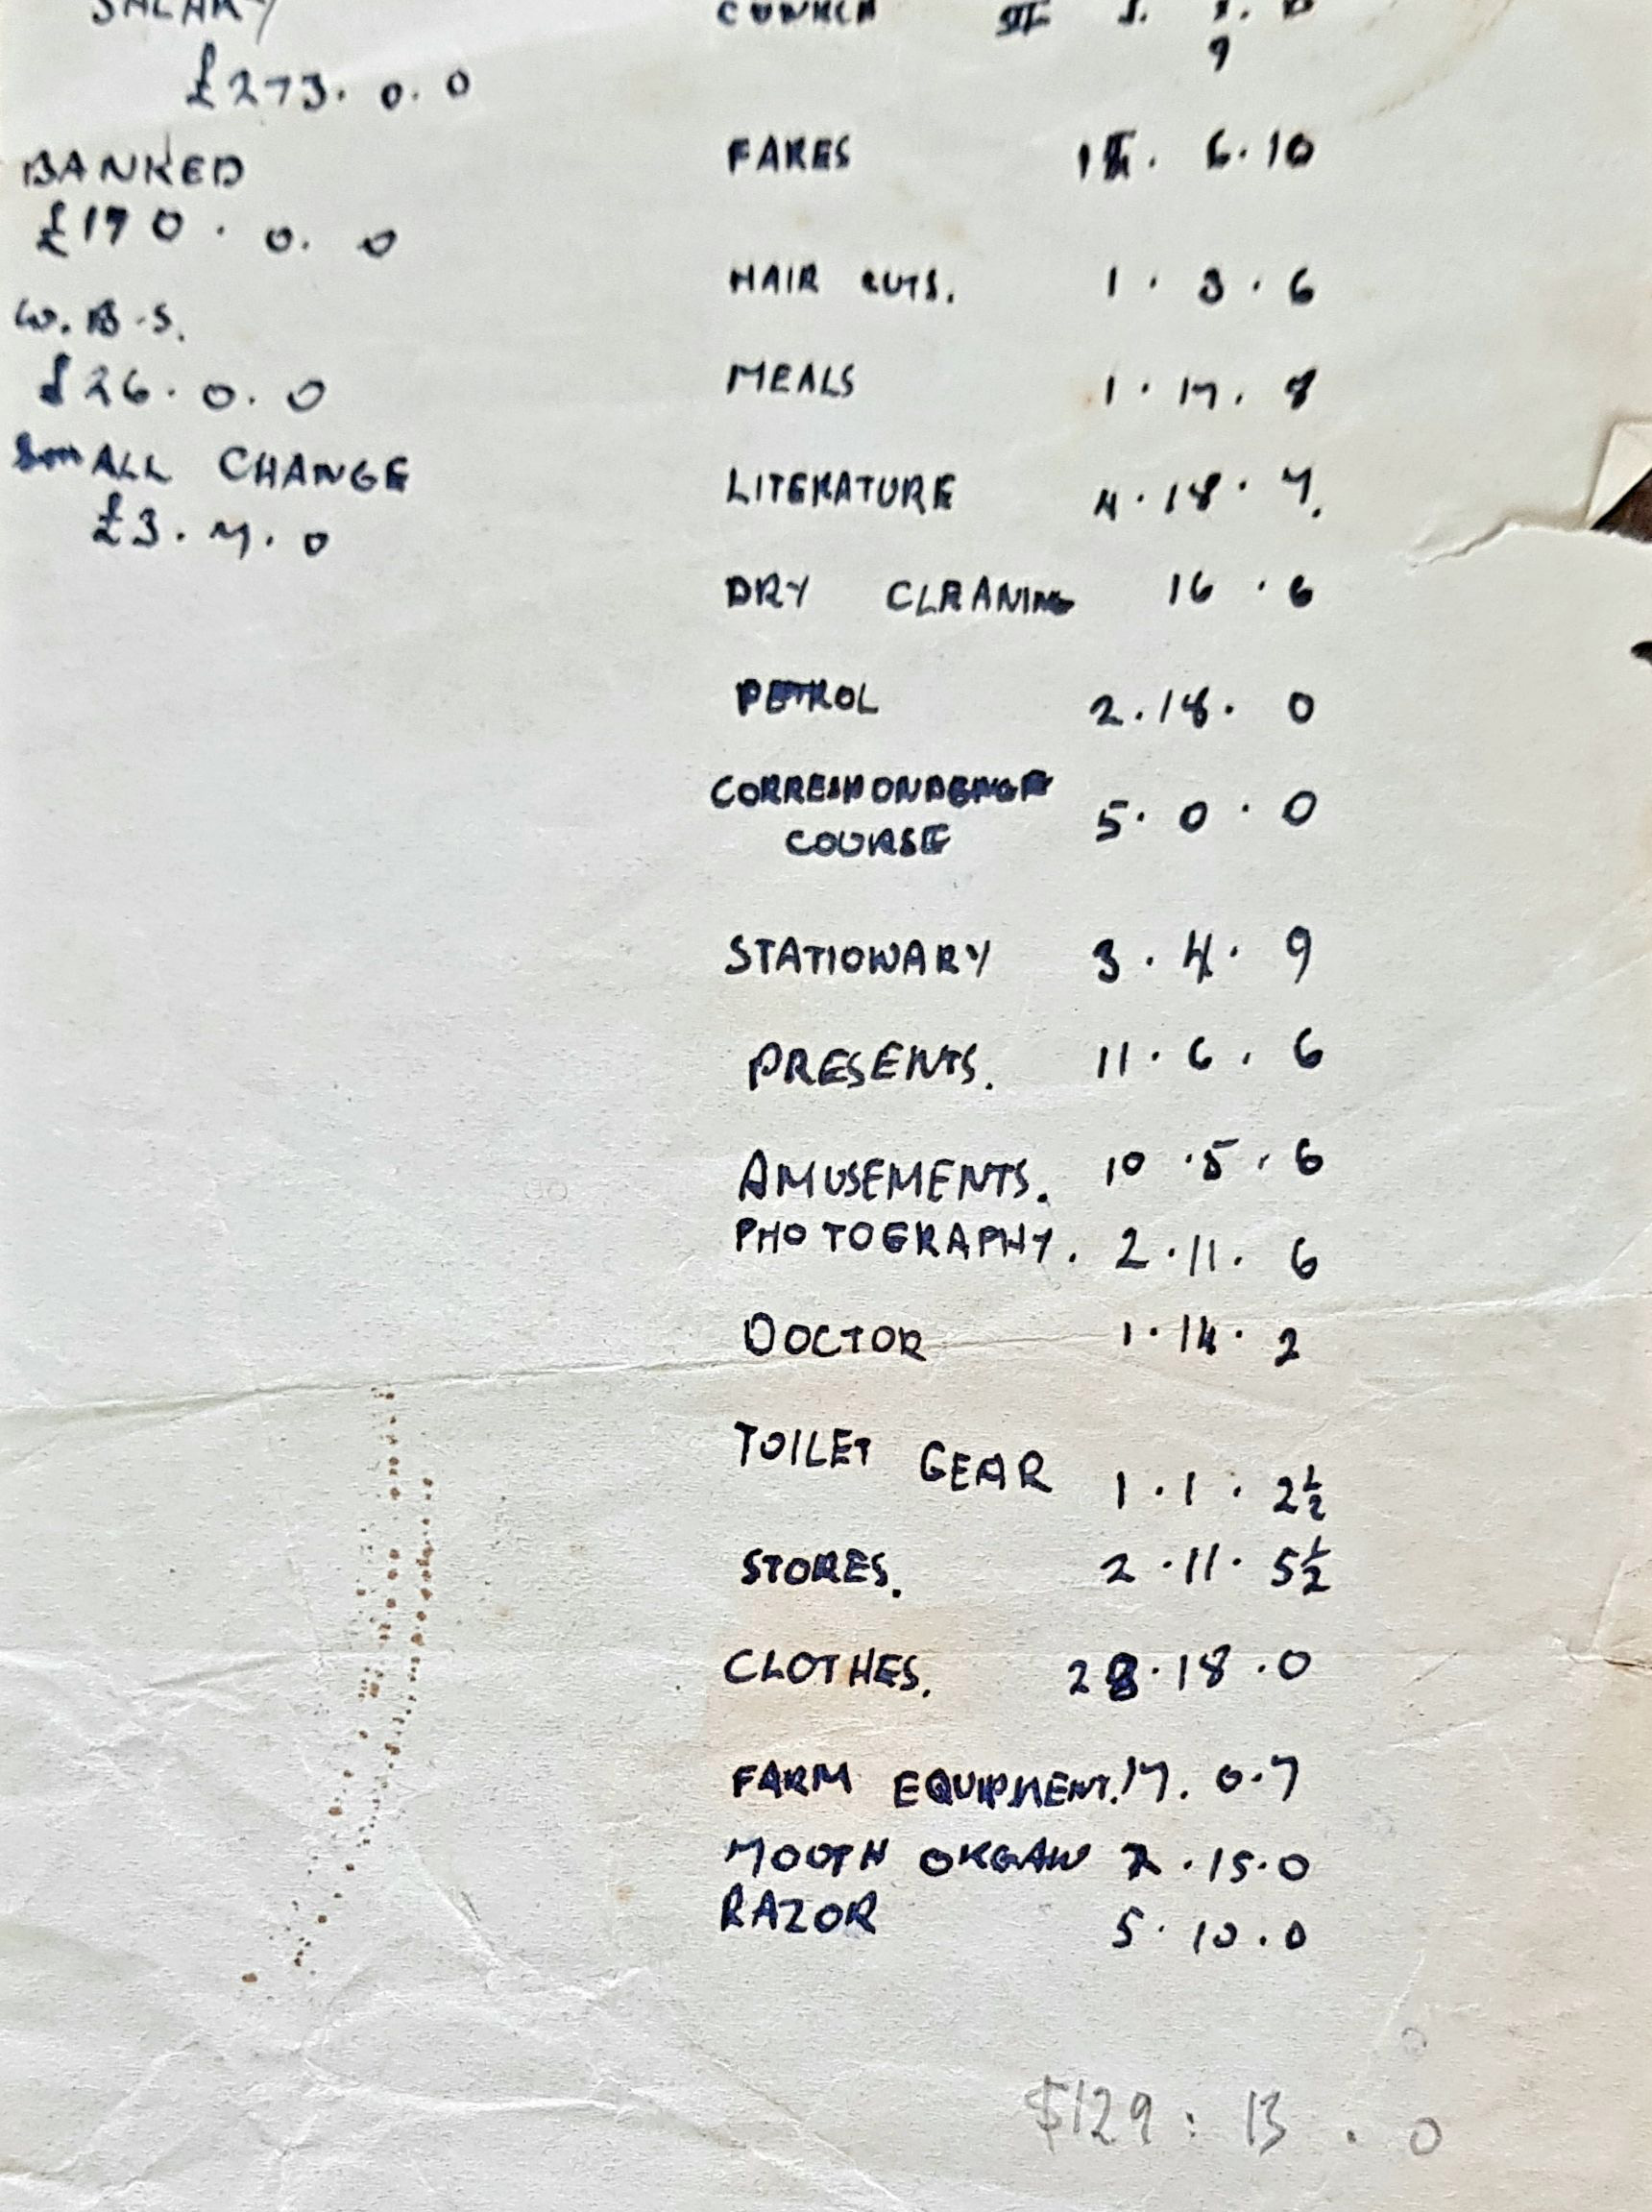 SALARY
£273. 0. 0
BANKED
£170. 0. 0
W.B.S.
£26. 0. 0
SMALL CHANGE
£3. 7. 0
CHURCH
9
FARES 6. 10
HAIR CUTS. 1. 3. 6
MEALS 1. 17. 8
LITERATURE 4. 18. 7.
DRY CLEANING 16. 6
PETROL 2. 18. 0
CORRESPONDENCE
COURSE 5. 0. 0
STATIONARY 3. 4. 9
PRESENTS. 11. 6. 6
AMUSEMENTS. 10. 5. 6
PHOTOGRAPHY. 2. 11. 6
DOCTOR 1. 14. 2
TOILET GEAR 1. 1. 2½
STORES. 2. 11. 5½
CLOTHES. 28. 18. 0
FARM EQUIPMENT. 17. 0. 7
MOUTH ORGAN 2. 15. 0
RAZOR 5. 10. 0
$129: 13. 0